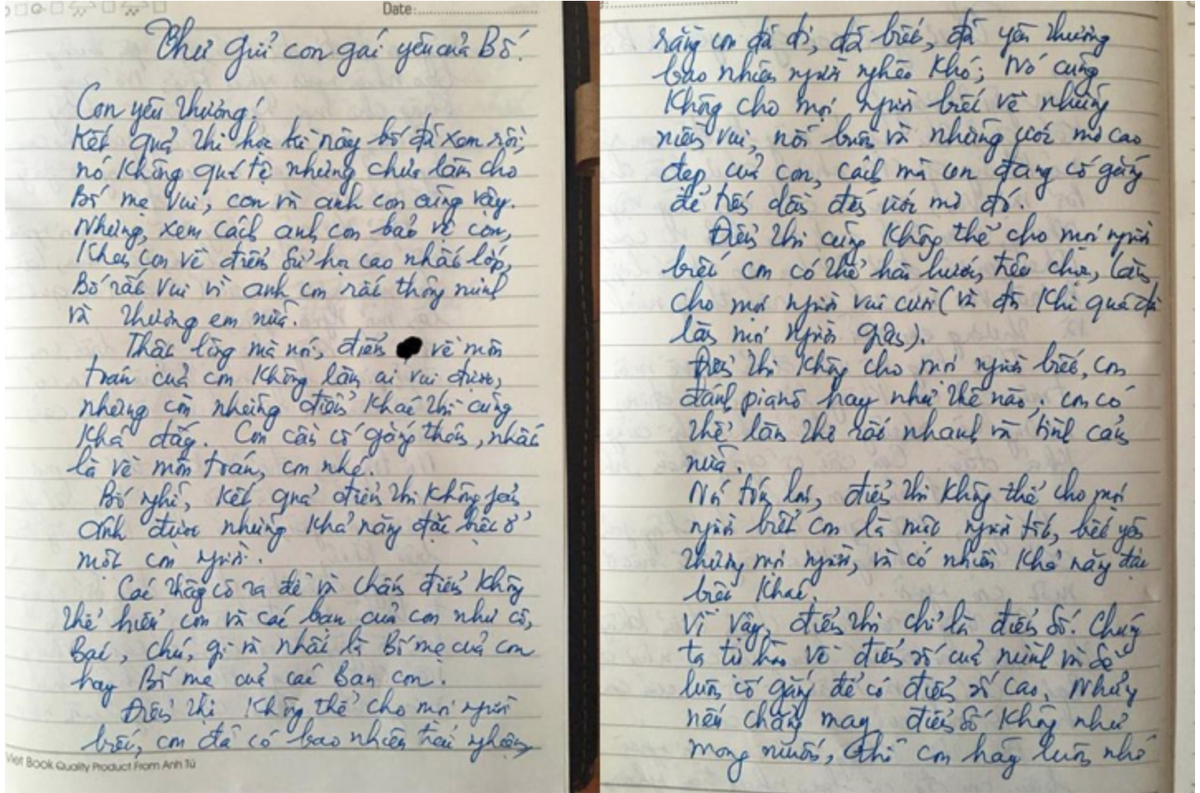 Date:
Thư gửi con gái yêu của Bố.
Con yêu thương!
Kết quả thi học kì này bố đã xem rồi,
nó không quá tệ nhưng chưa làm cho
Bố mẹ vui, con và anh con cũng vậy.
Nhưng, xem cách anh con bảo vệ con,
khoe con về điểm Sử học cao nhất lớp,
Bố rất vui vì anh con rất thông minh
và thương em nữa.
Thật lòng mà nói, điểm về môn
toán của con không làm ai vui được,
nhưng còn những điểm khác thì cũng
khá đấy. Con cần cố gắng thêm, nhất
là về môn toán, con nhé.
Bố nghĩ, kết quả điểm thi không
định được những khả năng đặc biệt ở
một con người.
Các thầy cô ra đề và chấm điểm không
thể hiểu con và các bạn của con như cô,
Bác, chú, gì và nhất là Bố mẹ của con
hay Bố mẹ của các bạn con.
Điểm thi không thể cho mọi người
biết, con đã có bao nhiêu trải nghiệm,
Viet Book Quality Product From Anh Tú
rằng con đã đi, đã biết, đã yêu thương
bao nhiêu người nghèo khó; Nó cũng
không cho mọi người biết về những
niềm vui, nỗi buồn và những ước mơ cao
đẹp của con, cách mà con đang cố gắng
để tiến dần đến ước mơ đó.
Điểm thi cũng không thể cho mọi người
biết con có thể hài hước, tếu táo, làm
cho mọi người vui cười (và đôi khi quá đà
làm mọi người giận).
Điểm thi không cho mọi người biết, con
đánh pianô hay như thế nào, con có
thể làm thơ rất nhanh và tình cảm
nữa.
Nói tóm lại, điểm thi không thể cho mọi
người biết con là một người tốt, biết yêu
thương mọi người, và có nhiều khả năng đặc
biệt khác.
Vì vậy, điểm thi chỉ là điểm số. Chúng
ta tự hào về điểm số của mình và sẽ
luôn cố gắng để có điểm số cao. Nhưng
nếu chẳng may điểm số không như
mong muốn, thì con hãy luôn nhớ